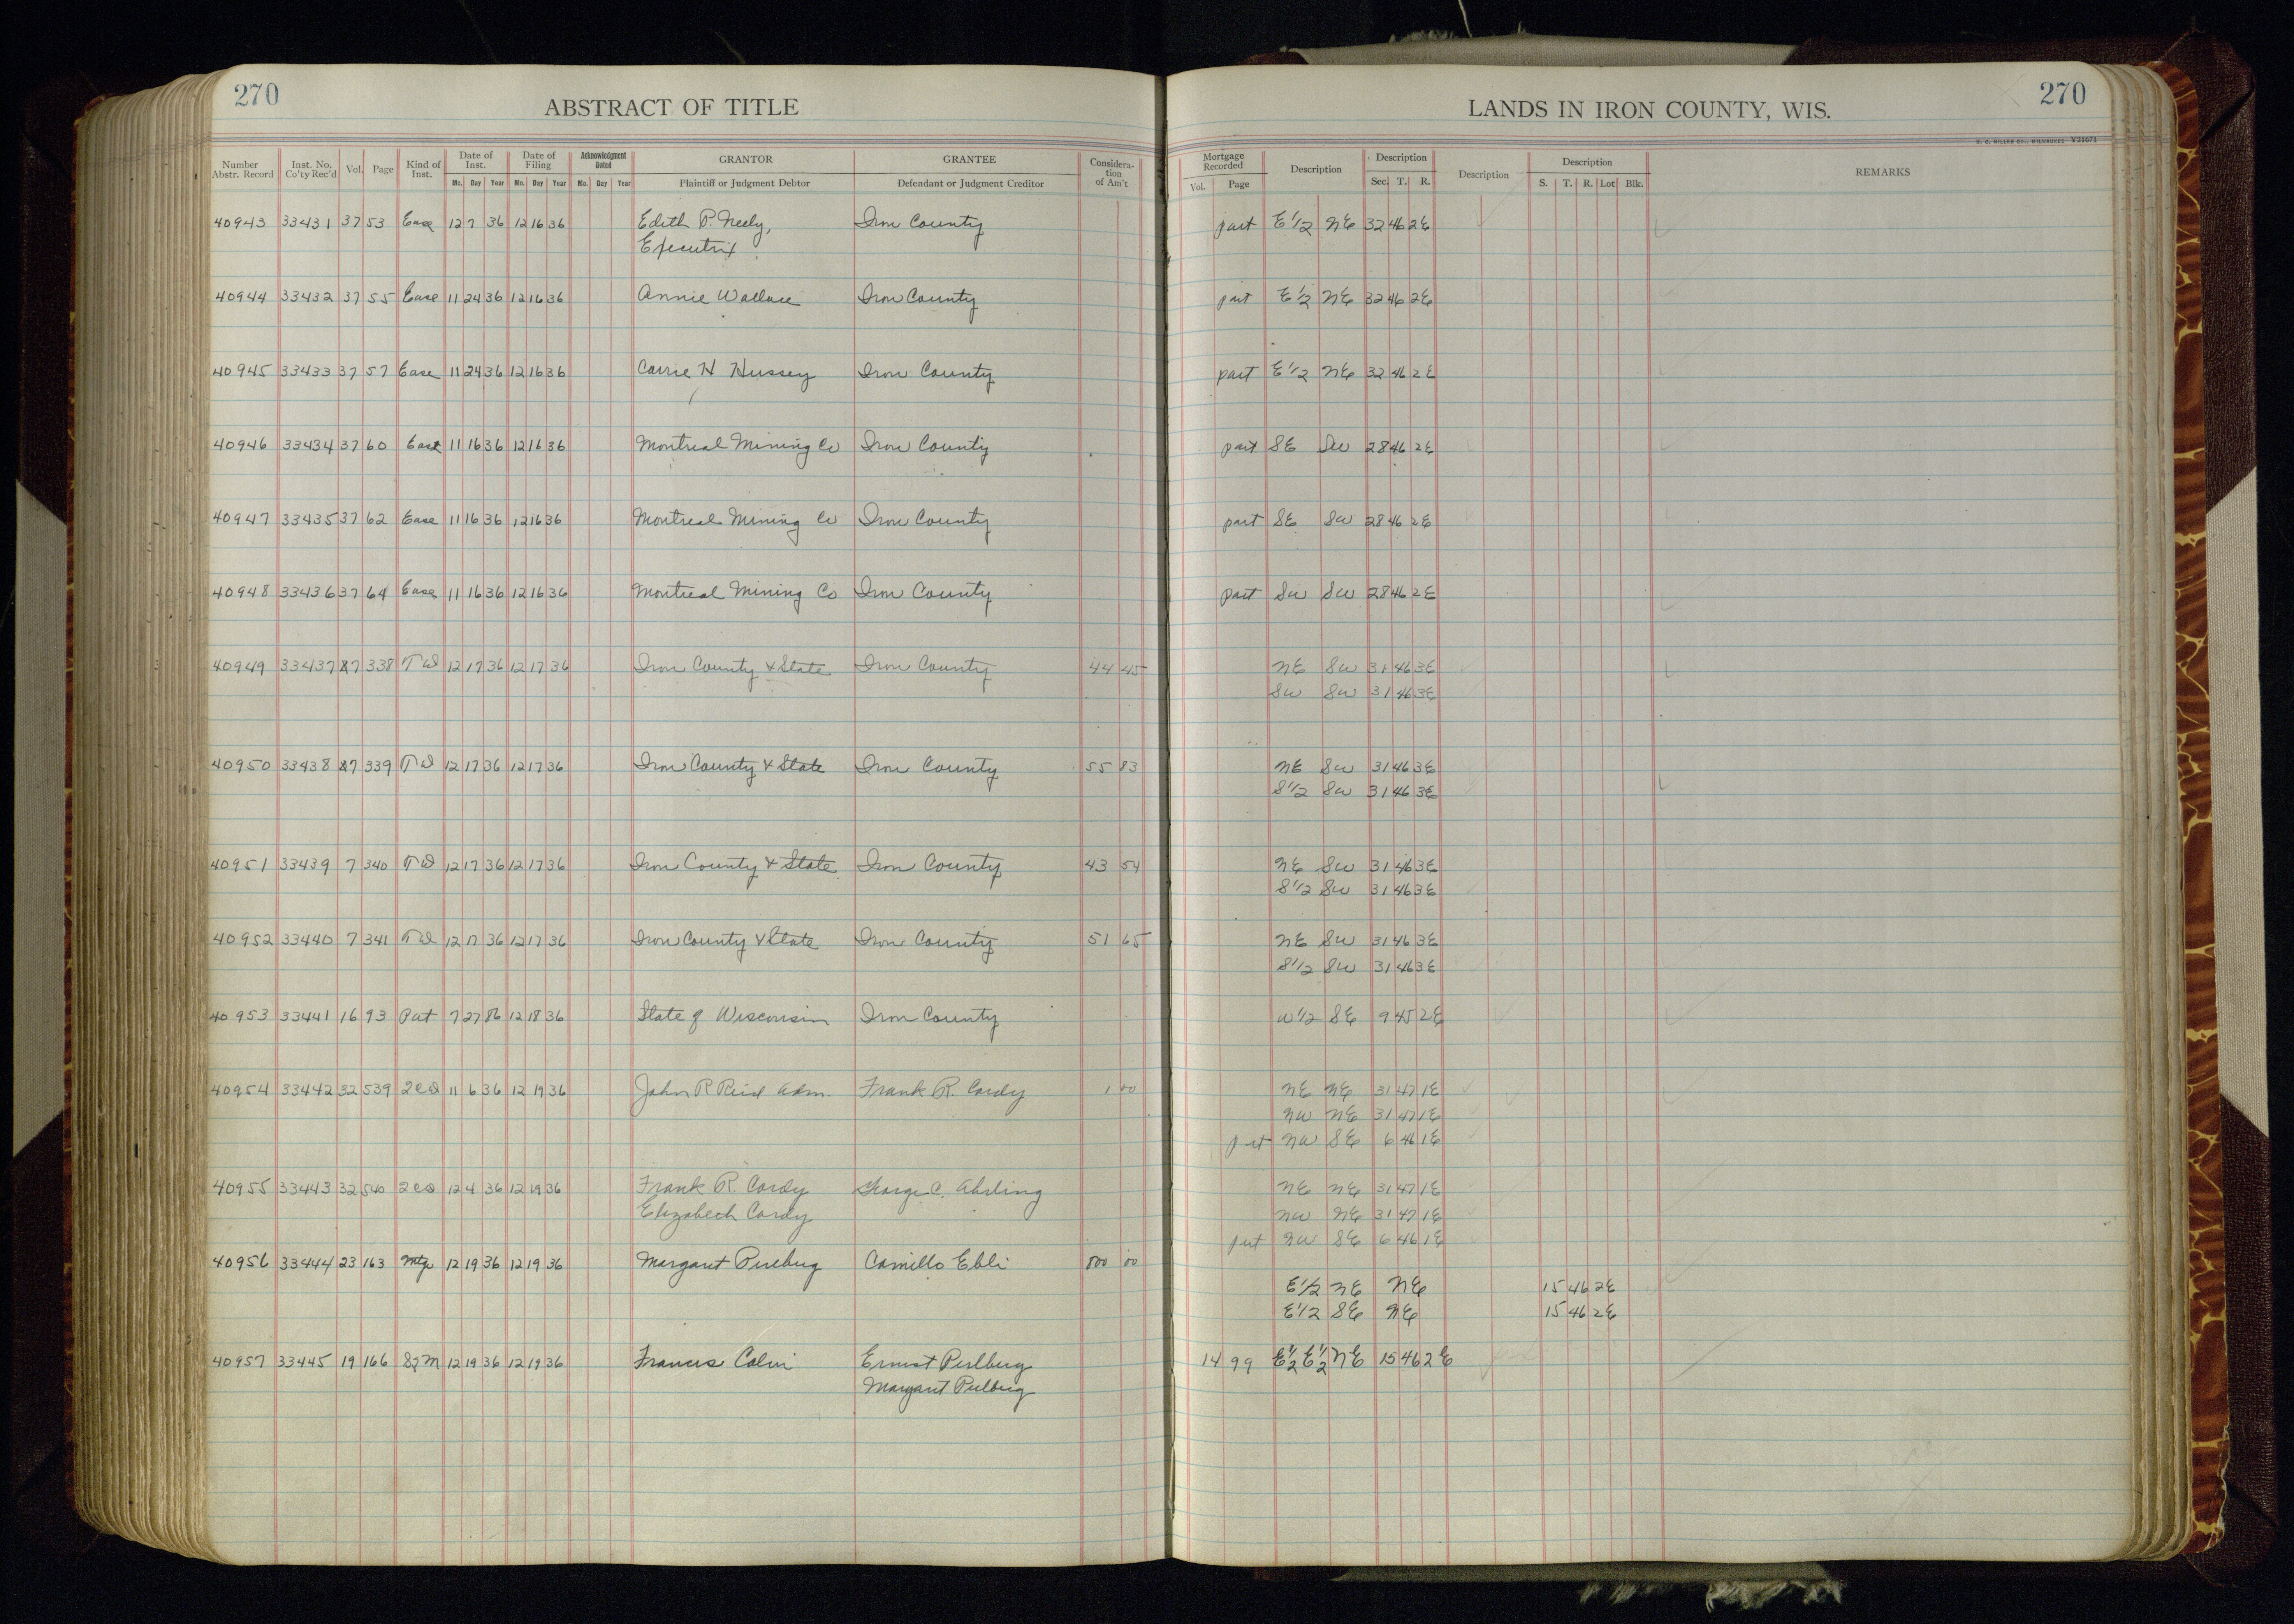 270 ABSTRACT OF TITLE LANDS IN IRON COUNTY, WIS. 270
H. C. MILLER CO., MILWAUKEE V21671
Number Abstr. Record Inst. No. Co'ty Rec'd Vol. Page Kind of Inst. Date of Inst. Mo. Day Year Date of Filing Mo. Day Year Acknowledgment Dated Mo. Day Year GRANTOR Plaintiff or Judgment Debtor GRANTEE Defendant or Judgment Creditor Consideration of Am't Mortgage Recorded Vol. Page Description Description Sec. T. R. Description Description S. T. R. Lot Blk. REMARKS
40943 33431 37 53 Ease 12 7 36 12 16 36 Edith P. Neely, Iron County part E 1/2 NE 32 46 2E
Executrix
40944 33432 37 55 Ease 11 24 36 12 16 36 Annie Wallace Iron County part E 1/2 NE 32 46 2E
40945 33433 37 57 Ease 11 24 36 12 16 36 Carrie H Hussey Iron County part E 1/2 NE 32 46 2E
40946 33434 37 60 Ease 11 16 36 12 16 36 Montreal Mining Co Iron County part SE SW 28 46 2E
40947 33435 37 62 Ease 11 16 36 12 16 36 Montreal Mining Co Iron County part SE SW 28 46 2E
40948 33436 37 64 Ease 11 16 36 12 16 36 Montreal Mining Co Iron County part SW SW 28 46 2E
40949 33437 7 338 TD 12 17 36 12 17 36 Iron County & State Iron County 44 45 NE SW 31 46 3E
SW SW 31 46 3E
40950 33438 7 339 TD 12 17 36 12 17 36 Iron County & State Iron County 55 83 NE SW 31 46 3E
S 1/2 SW 31 46 3E
40951 33439 7 340 TD 12 17 36 12 17 36 Iron County & State Iron County 43 54 NE SW 31 46 3E
S 1/2 SW 31 46 3E
40952 33440 7 341 TD 12 17 36 12 17 36 Iron County & State Iron County 51 65 NE SW 31 46 3E
S 1/2 SW 31 46 3E
40953 33441 16 93 Pat 7 27 86 12 18 36 State of Wisconsin Iron County W 1/2 SE 9 45 2E
40954 33442 32 539 2CD 11 6 36 12 19 36 John R Reid Adm. Frank R. Cardy 1 00 NE NE 31 47 1E
NW NE 31 47 1E
part NW SE 6 46 1E
40955 33443 32 540 2CD 12 4 36 12 19 36 Frank R. Cardy George C. Ahrling NE NE 31 47 1E
Elizabeth Cardy NW NE 31 47 1E
part NW SE 6 46 1E
40956 33444 23 163 Mtg 12 19 36 12 19 36 Margaret Camillo Ebli 500 00
E 1/2 NE NE 15 46 2E
E 1/2 SE NE 15 46 2E
40957 33445 19 166 12 19 36 12 19 36 Francis Ernest 14 99 E 1/2 E 1/2 NE 15 46 2E
Margaret